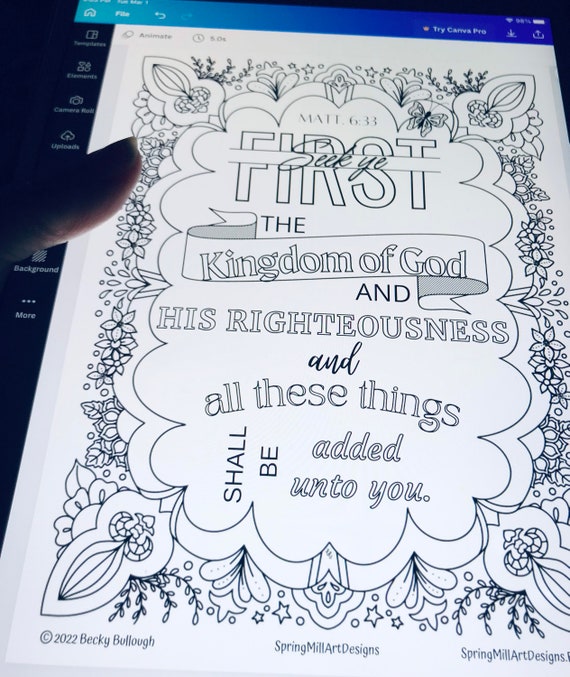 Tue Mar 1
98%
File
Try Canva Pro
Templates
Animate
5.0s
Elements
Camera Roll
Uploads
Background
More
MATT. 6:33
Seek ye
FIRST
THE
Kingdom of God
AND
HIS RIGHTEOUSNESS
and
all these things
SHALL
BE
added
unto you.
©2022 Becky Bullough
SpringMillArtDesigns
SpringMillArtDesigns.